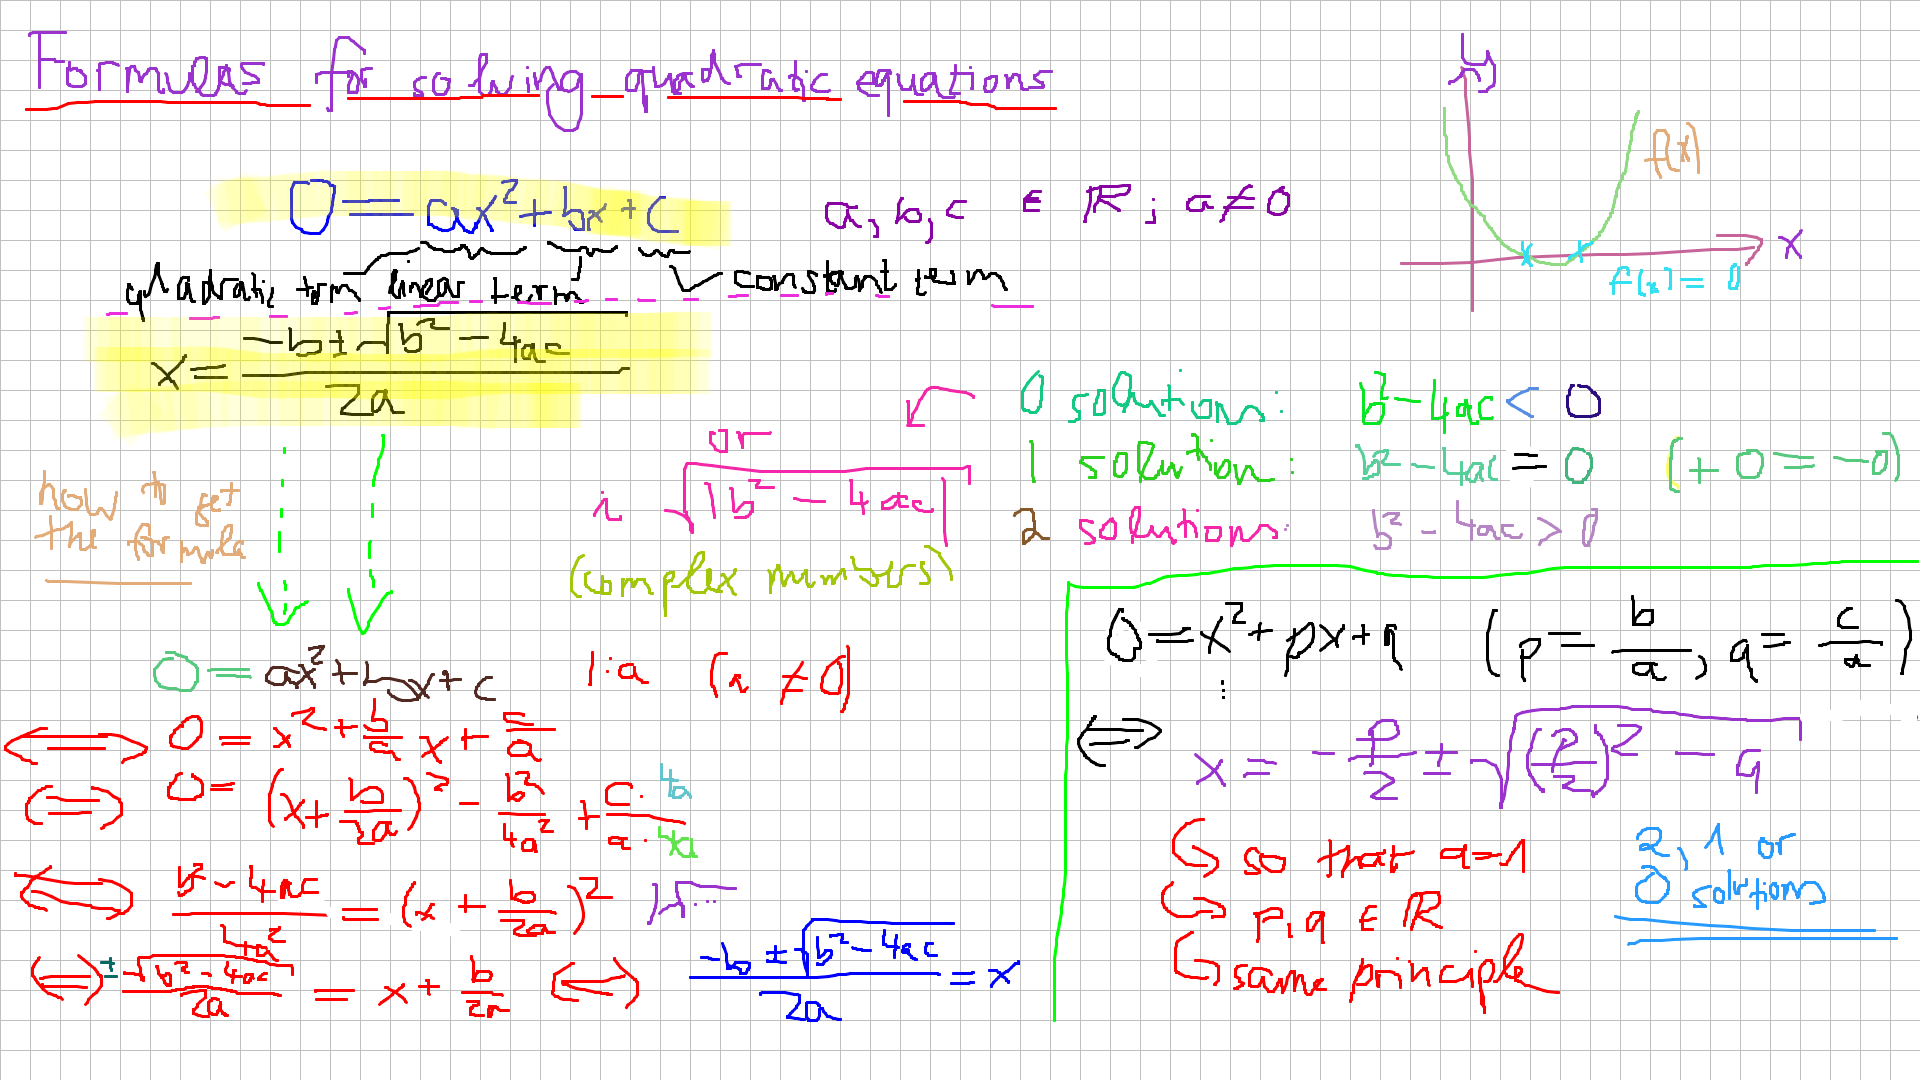 Formulas for solving quadratic equations
y
f(x)
x
f(x) = 0
0 = ax² + bx + c
a, b, c ∈ ℝ ; a ≠ 0
quadratic term linear term constant term
x = (-b ± √(b² - 4ac)) / 2a
0 solutions: b² - 4ac < 0
1 solution: b² - 4ac = 0 (+0 = -0)
2 solutions: b² - 4ac > 0
or
i √|b² - 4ac|
(complex numbers)
how to get
the formula
0 = ax² + bx + c |:a (a ≠ 0)
⟺ 0 = x² + b/a x + c/a
⟺ 0 = (x + b/2a)² - b²/4a² + c·4a/a·4a
⟺ (b² - 4ac)/4a² = (x + b/2a)² |√...
⟺ ± √(b² - 4ac)/2a = x + b/2a ⟺ (-b ± √(b² - 4ac))/2a = x
0 = x² + px + q (p = b/a, q = c/a)
⋮
⟺ x = -p/2 ± √((p/2)² - q)
↪ so that a=1
↪ p,q ∈ ℝ
↪ same principle
2, 1 or
0 solutions